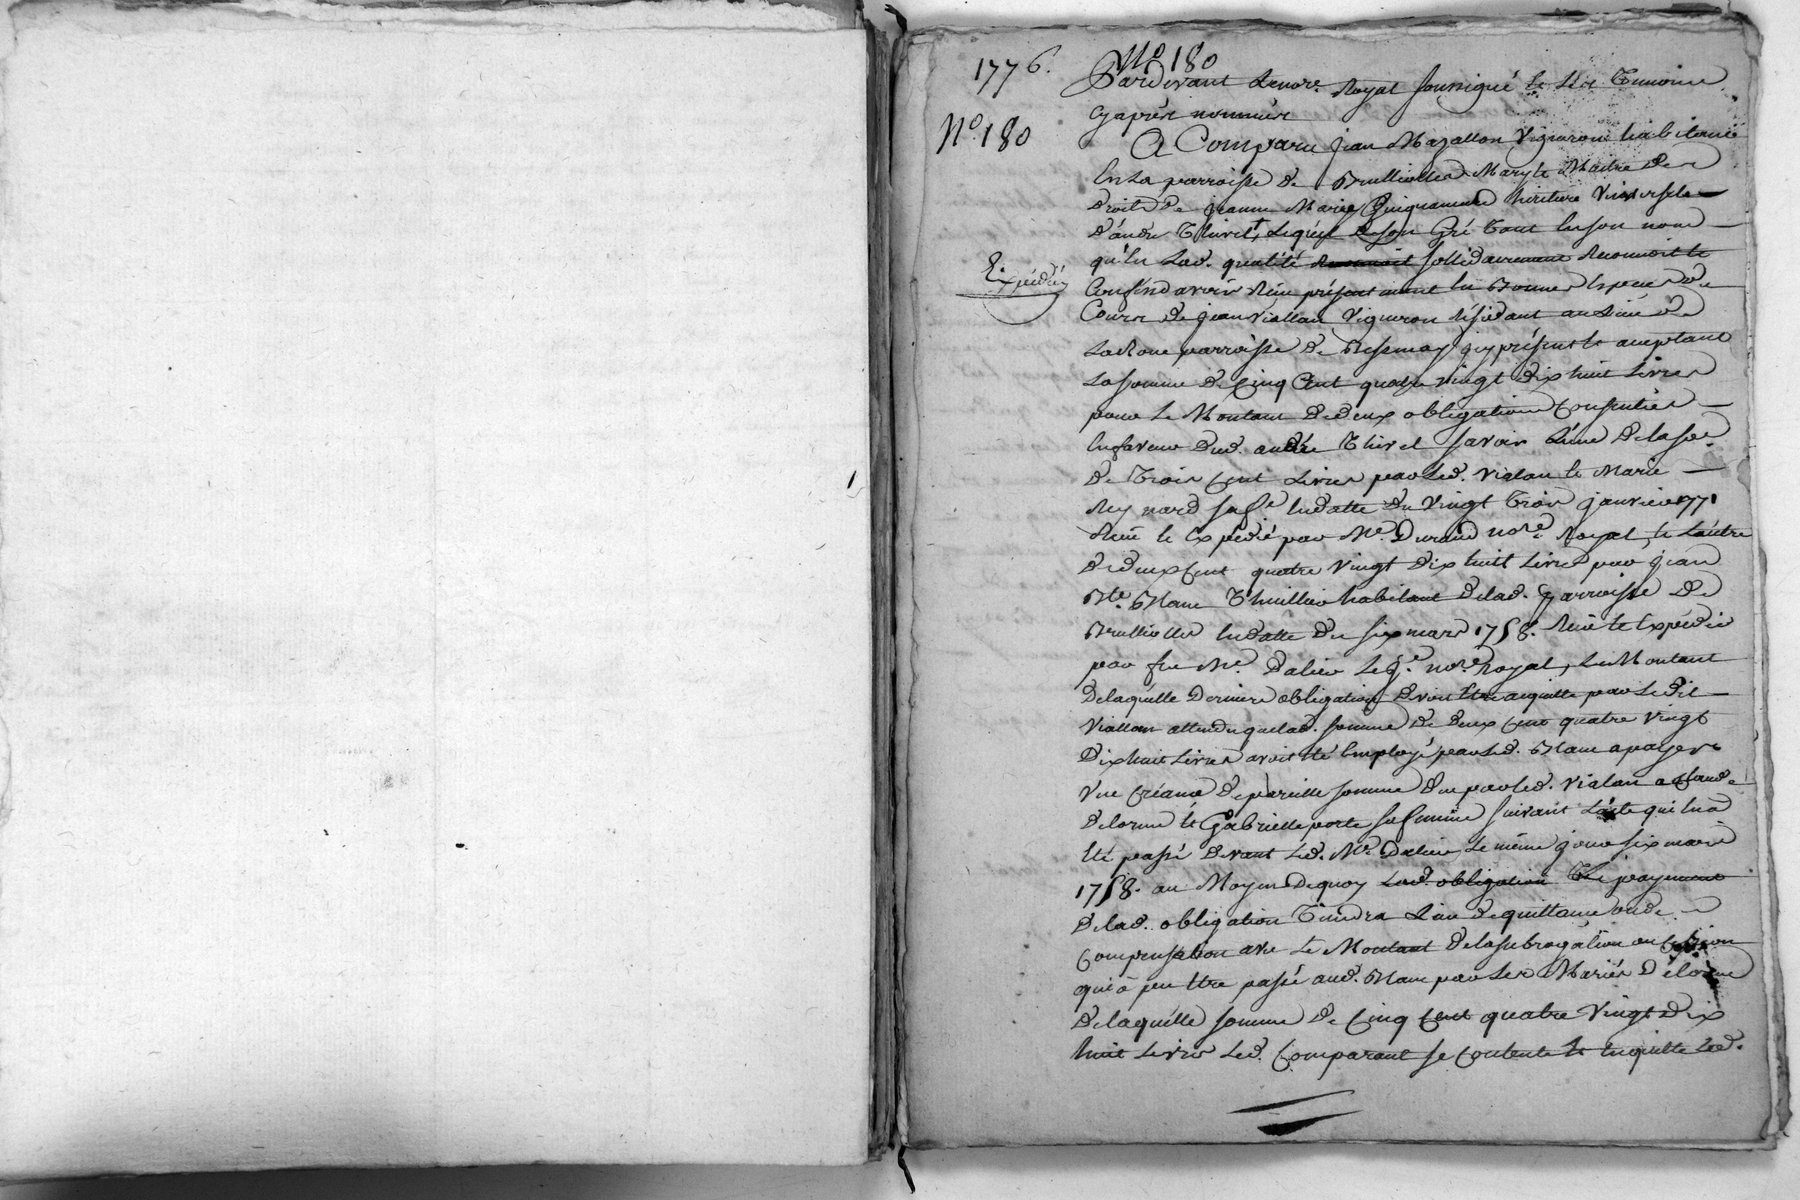 1776.
N° 180
N° 180
Expédié
Pardevant Lenore. Royal soussigné et Les Temoins
cyaprès nommés
A Comparu Jean Mazallon Vigneron habitant
En La parroisse de Brulliolles Mary et Maitre des
Droits de jeanne Marie heritiere Universelle
D'andré Thivel, Lequel de son Gré tant En son nom
qu'En Lad. qualité sollidairement Reconnoit et
Confesse avoir Reçu présentement En Bonnes Especes de
Cours de jean Viallan Vigneron Résidant au Lieu de
LaRoue parroisse de Bessenay icy présent et acceptant
La somme de Cinq Cent quatre vingt dix huit Livres
pour Le Montant de deux obligations Consenties
En faveur dud. andré Thivel savoir L'une de la so.e
de Trois Cent Livres par Led. Vialan et Marie
Reynard sa f.e En datte du Vingt Trois janvier 1771
Reçue et Expédié par Me. Durand nore. Royal, et L'autre
de deux Cent quatre Vingt dix huit Livres par jean
Bte. Blanc Thuillier habitant de lad. parroisse de
Brulliolles En datte du six mars 1758. Reçue et Expédié
par feu Me Dalin Le j.e nore. Royal, Le Montant
de laquelle derniere obligation devoit Etre acquitté par Le dit
Viallan attendu que lad. somme de deux Cent quatre vingt
dix huit Livres avoit Eté Employé par Led. Blanc a payer
Une Créance de pareille somme due par led. Vialan a Claude
Delorme et Gabrielle porte sa femme suivant L'acte qui En a
Eté passé devant Led. Me Dalin Le même jour six mars
1758. au Moyen de quoy Lad. obligation Le payement
de lad. obligation Tiendra Lieu de quittance ou de
Compensation avec Le Montant de la subrogation ou Cession
qui a peu Etre passé aud. Blanc par Les Mariés Delorme
de laquélle somme de Cinq Cent quatre Vingt dix
huit Livres Led. Comparant se Contente et En quitte Led.